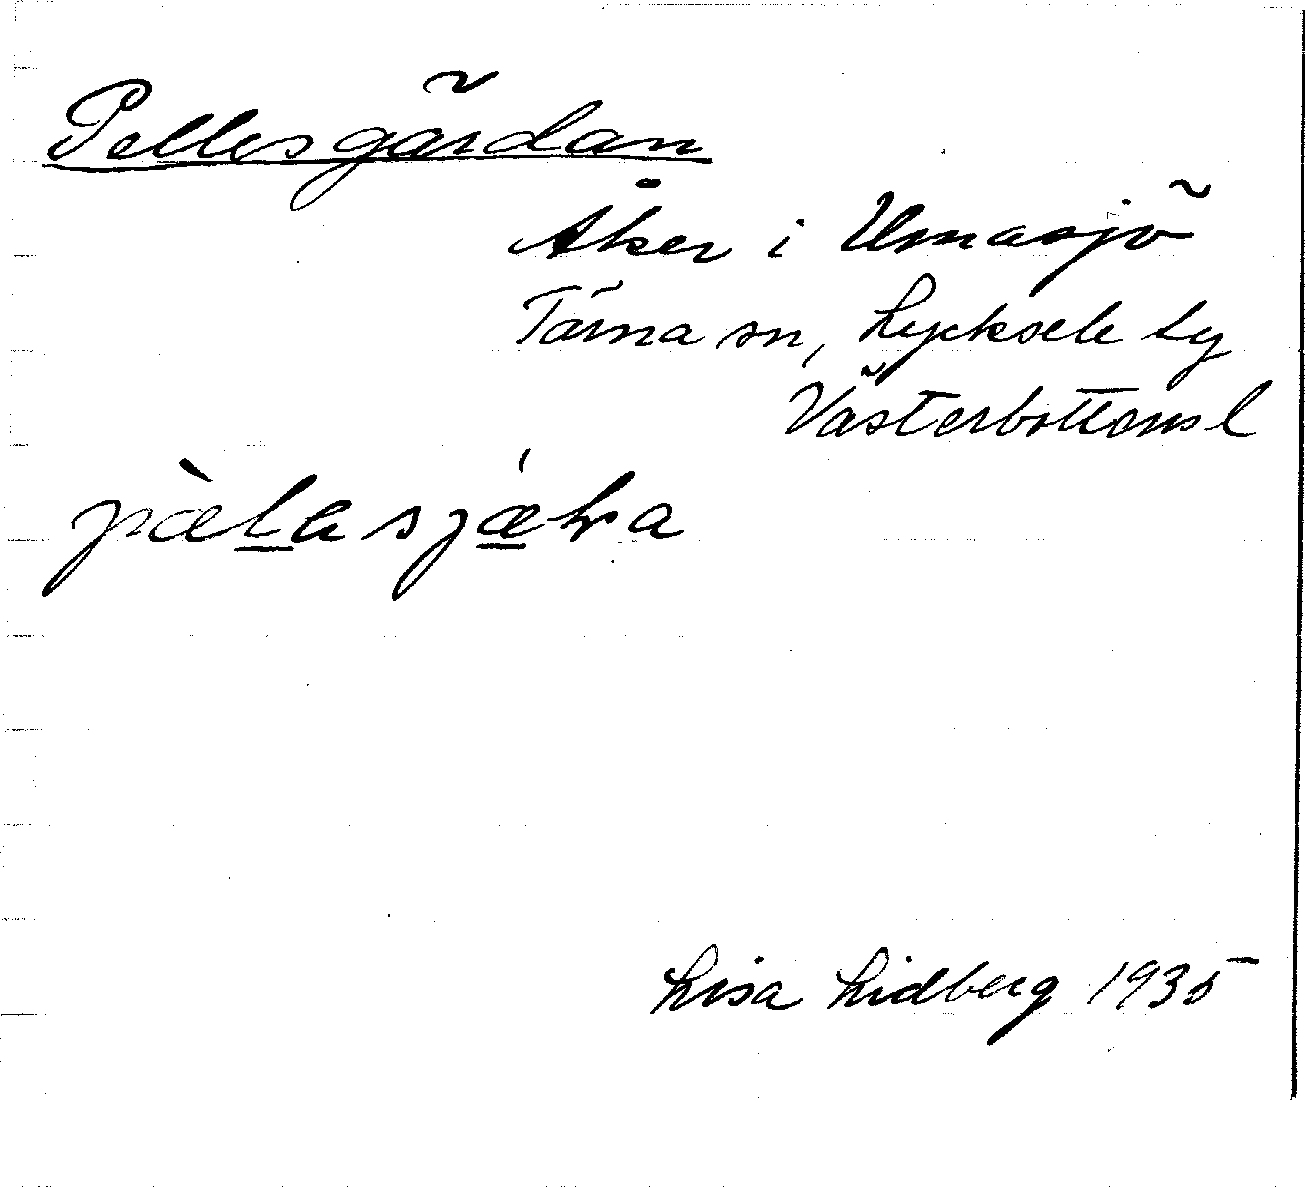 Pellesgärdan
Åker i Umasjö
Tärna sn, Lycksele ty
Västerbottens l
pæ̀l̲asjǽ̲ra
Lisa Lidberg 1935